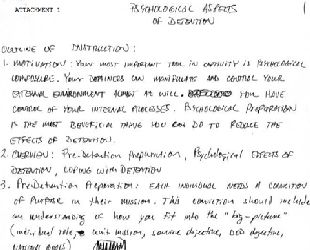 ATTACHMENT 1
PSYCHOLOGICAL ASPECTS
OF DETENTION
OUTLINE OF INSTRUCTION:
1. MOTIVATION: YOUR MOST IMPORTANT TOOL IN CAPTIVITY IS PSYCHOLOGICAL
COMPOSURE. YOUR DETAINERS CAN MANIPULATE AND CONTROL YOUR
EXTERNAL ENVIRONMENT ALMOST AT WILL. YOU HAVE
CONTROL OF YOUR INTERNAL PROCESSES. PSYCHOLOGICAL PREPARATION
IS THE MOST BENEFICIAL THING YOU CAN DO TO REDUCE THE
EFFECTS OF DETENTION.
2. OVERVIEW: Pre-Detention Preparation, Psychological Effects OF
DETENTION, COPING WITH DETENTION
3. Pre-Detention Preparation: EACH INDIVIDUAL NEEDS A CONVICTION
OF PURPOSE IN THEIR MISSION. THIS CONVICTION should include
an understanding of how you fit into the "big-picture"
(individual role, unit mission, service objective, DOD objective,
NATIONAL GOALS)